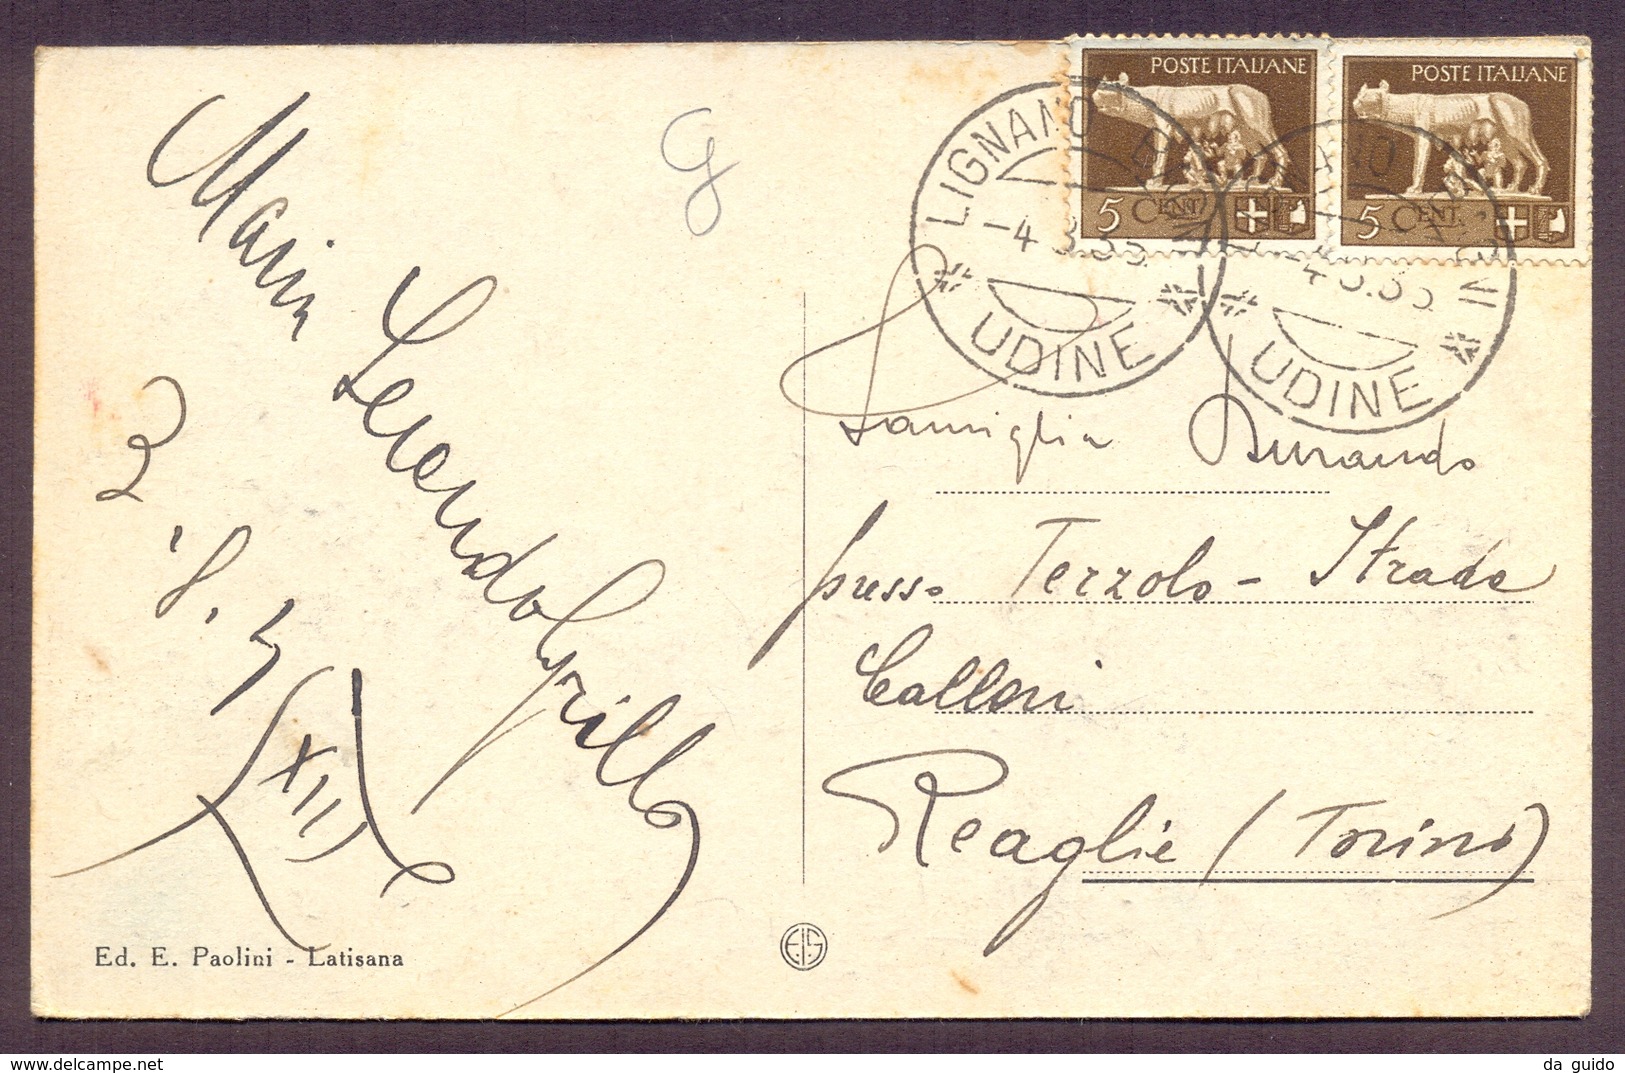 POSTE ITALIANE
5 CENT.
POSTE ITALIANE
5 CENT.
LIGNANO BAGNI
-4.8.35.
UDINE
-4.8.35
UDINE
G
Famiglia Durando
presso Terzolo - Strada
Calleri
Reaglie (Torino)
Grillo
3
XIII
Ed. E. Paolini - Latisana
EIS
da guido